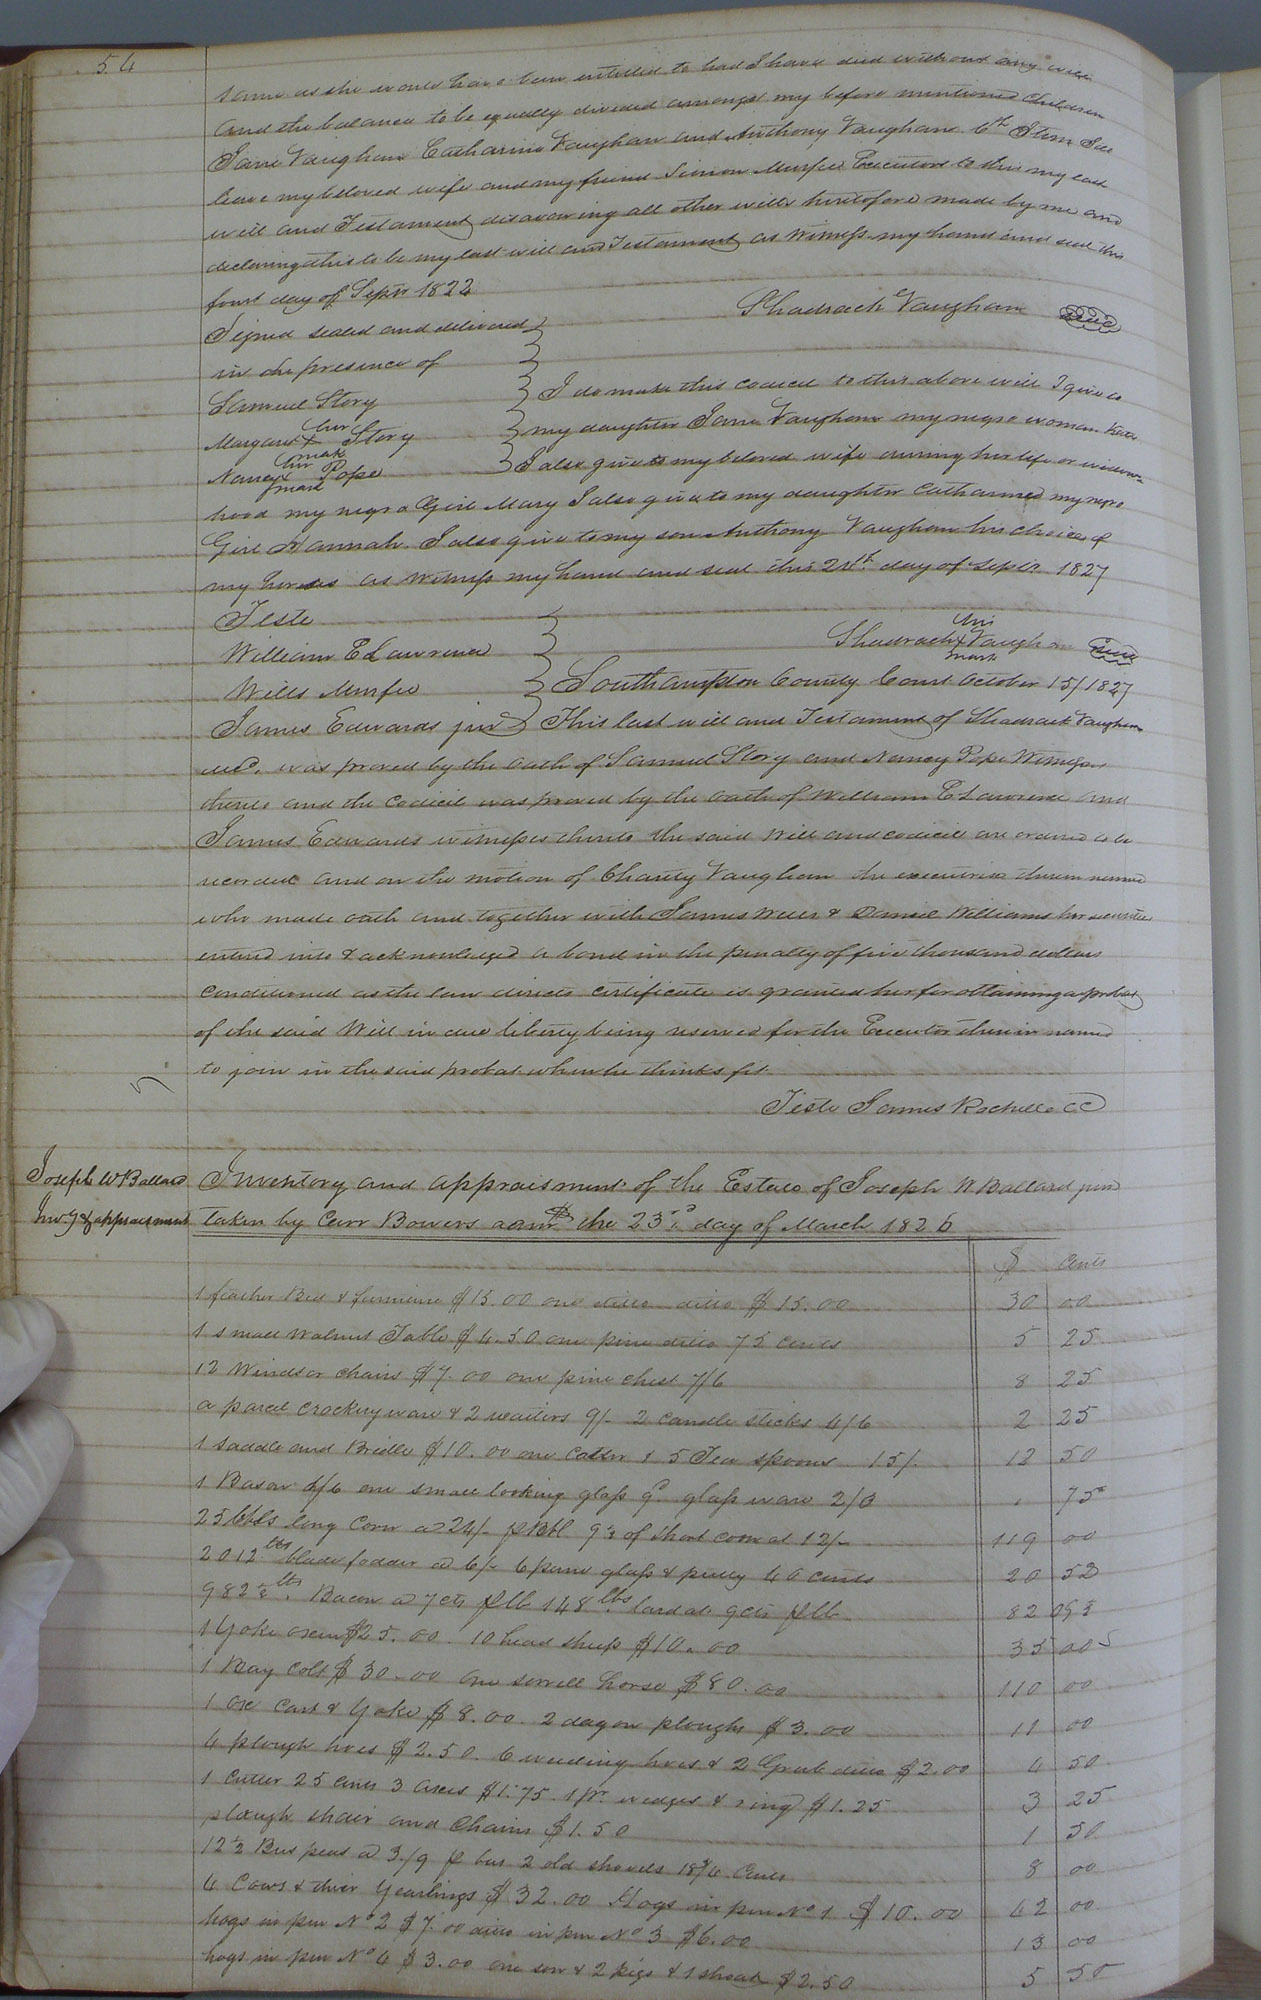 54
same as she would have been entitled to had I have died without any will
and the balance to be equally divided amongst my before mentioned children
Jane Vaughan Catharine Vaughan and Anthony Vaughan 6th Item I do
leave my beloved wife and my friend Simon Murfee Executors to this my last
will and Testament disavowing all other wills heretofore made by me and
declaring this to be my last will and Testament as Witness my hand and seal this
first day of Septr 1822
Shadrach Vaughan seal
Signed sealed and delivered
in the presence of
Samuel Story
Margaret her X mark Story
Nancy her X mark Pope
I do make this codicil to this above will I give to
my daughter Jane Vaughan my negro woman
I also give to my beloved wife during her life or widow-
hood my negro Girl Mary I also give to my daughter Catharine my negro
Girl Hannah I also give to my son Anthony Vaughan his choice of
my horses as witness my hand and seal this day of Septr 1827
Teste
William E Lawrence
Wills Murfee
James Edwards junr
Shadrach his X mark Vaughan seal
Southampton County Court October 15/1827
This last will and Testament of Shadrach Vaughan
decd. was proved by the oath of Samuel Story and Nancy Pope Witnesses
thereto and the codicil was proved by the oath of William E Lawrence and
James Edwards witnesses thereto the said Will and codicil are ordered to be
recorded and on the motion of Charity Vaughan the executrix therein named
who made oath and together with James Wills & Daniel Williams her securities
entered into & acknowledged a bond in the penalty of five thousand dollars
conditioned as the law directs certificate is granted her for obtaining a probat
of the said Will in due liberty being reserved for the Executor therein named
to join in the said probat when he thinks fit
Teste James Rochelle CC
Joseph W Ballard
Invy & appraisment
Inventory and appraisment of the Estate of Joseph W Ballard junr
taken by Carr Bowers admr the 23rd day of March 1826
$ Cents
1 feather Bed & furniture $15.00 one ditto ditto $15.00 30 00
1 small Walnut Table $4.50 one pine ditto 75 cents 5 25
12 Windsor chairs $7.00 one pine chest 7/6 8 25
a parcel crockery ware & 2 waiters 9/- 2 candle sticks 4/6 2 25
1 saddle and Bridle $10.00 one Castor & 5 Tea spoons 15/- 12 50
1 Bason one small looking glass glass ware 75
25 bbls long Corn @ 24/- p Bbl of short corn at 12/- 119 00
2012 lbs blade fodder @ 6/- 6 pane glass & putty 40 cents 20 52
982½ lbs. Bacon @ 7 cts p lb 148 lbs lard at 9 cts p lb 82 09½
1 Yoke oxen $25.00. 10 head sheep $10.00 35 00
1 Bay Colt $30.00 One sorrell horse $80.00 110 00
1 Ox Cart & Yoke $8.00 2 dagon ploughs $3.00 11 00
4 plough hoes $2.50. 6 weeding hoes & 2 Grub ditto $2.00 4 50
1 Cutter 25 cents 3 axes $1.75. 1 pr. wedges & ring $1.25 3 25
plough shair and Chains $1.50 1 50
12½ Bus peas @ 3/9 p bus 2 old shovels 18¾ Cents 8 00
4 Cows & their Yearlings $32.00 Hogs in pen No 1 $10.00 42 00
hogs in pen No 2 $7.00 ditto in pen No 3 $6.00 13 00
hogs in pen No 4 $3.00 one sow & 2 pigs & 1 shoat $2.50 5 50